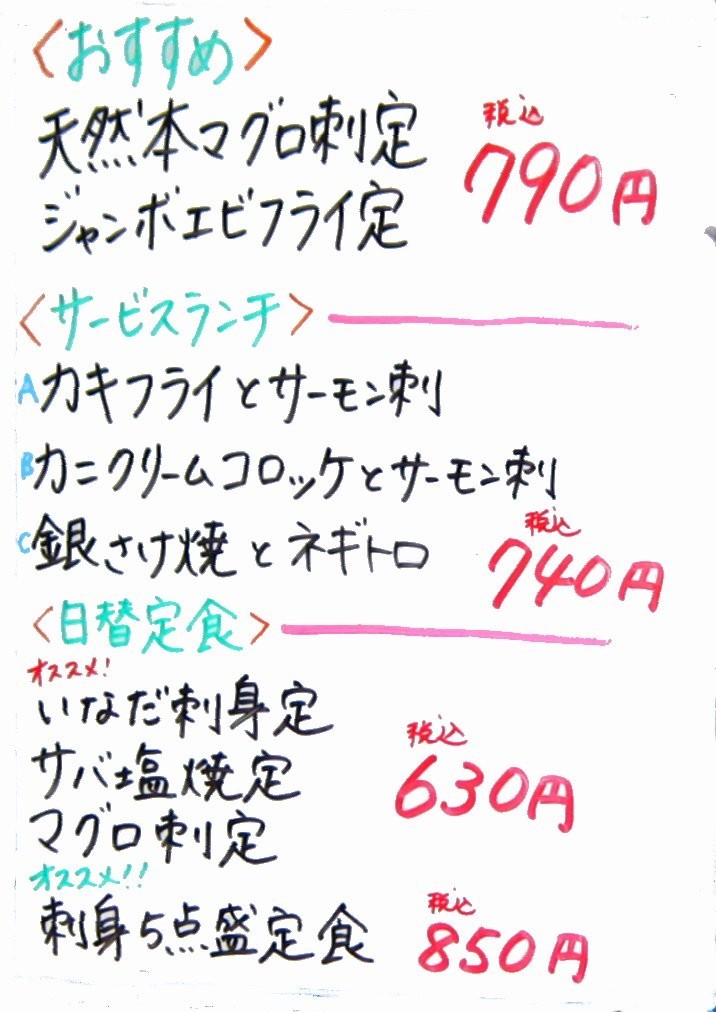 〈おすすめ〉
天然本マグロ刺定
税込
790円
ジャンボエビフライ定
〈サービスランチ〉
Aカキフライとサーモン刺
Bカニクリームコロッケとサーモン刺
C銀さけ焼とネギトロ
税込
740円
〈日替定食〉
オススメ!
いなだ刺身定
サバ塩焼定
マグロ刺定
税込
630円
オススメ!!
刺身5点盛定食
税込
850円